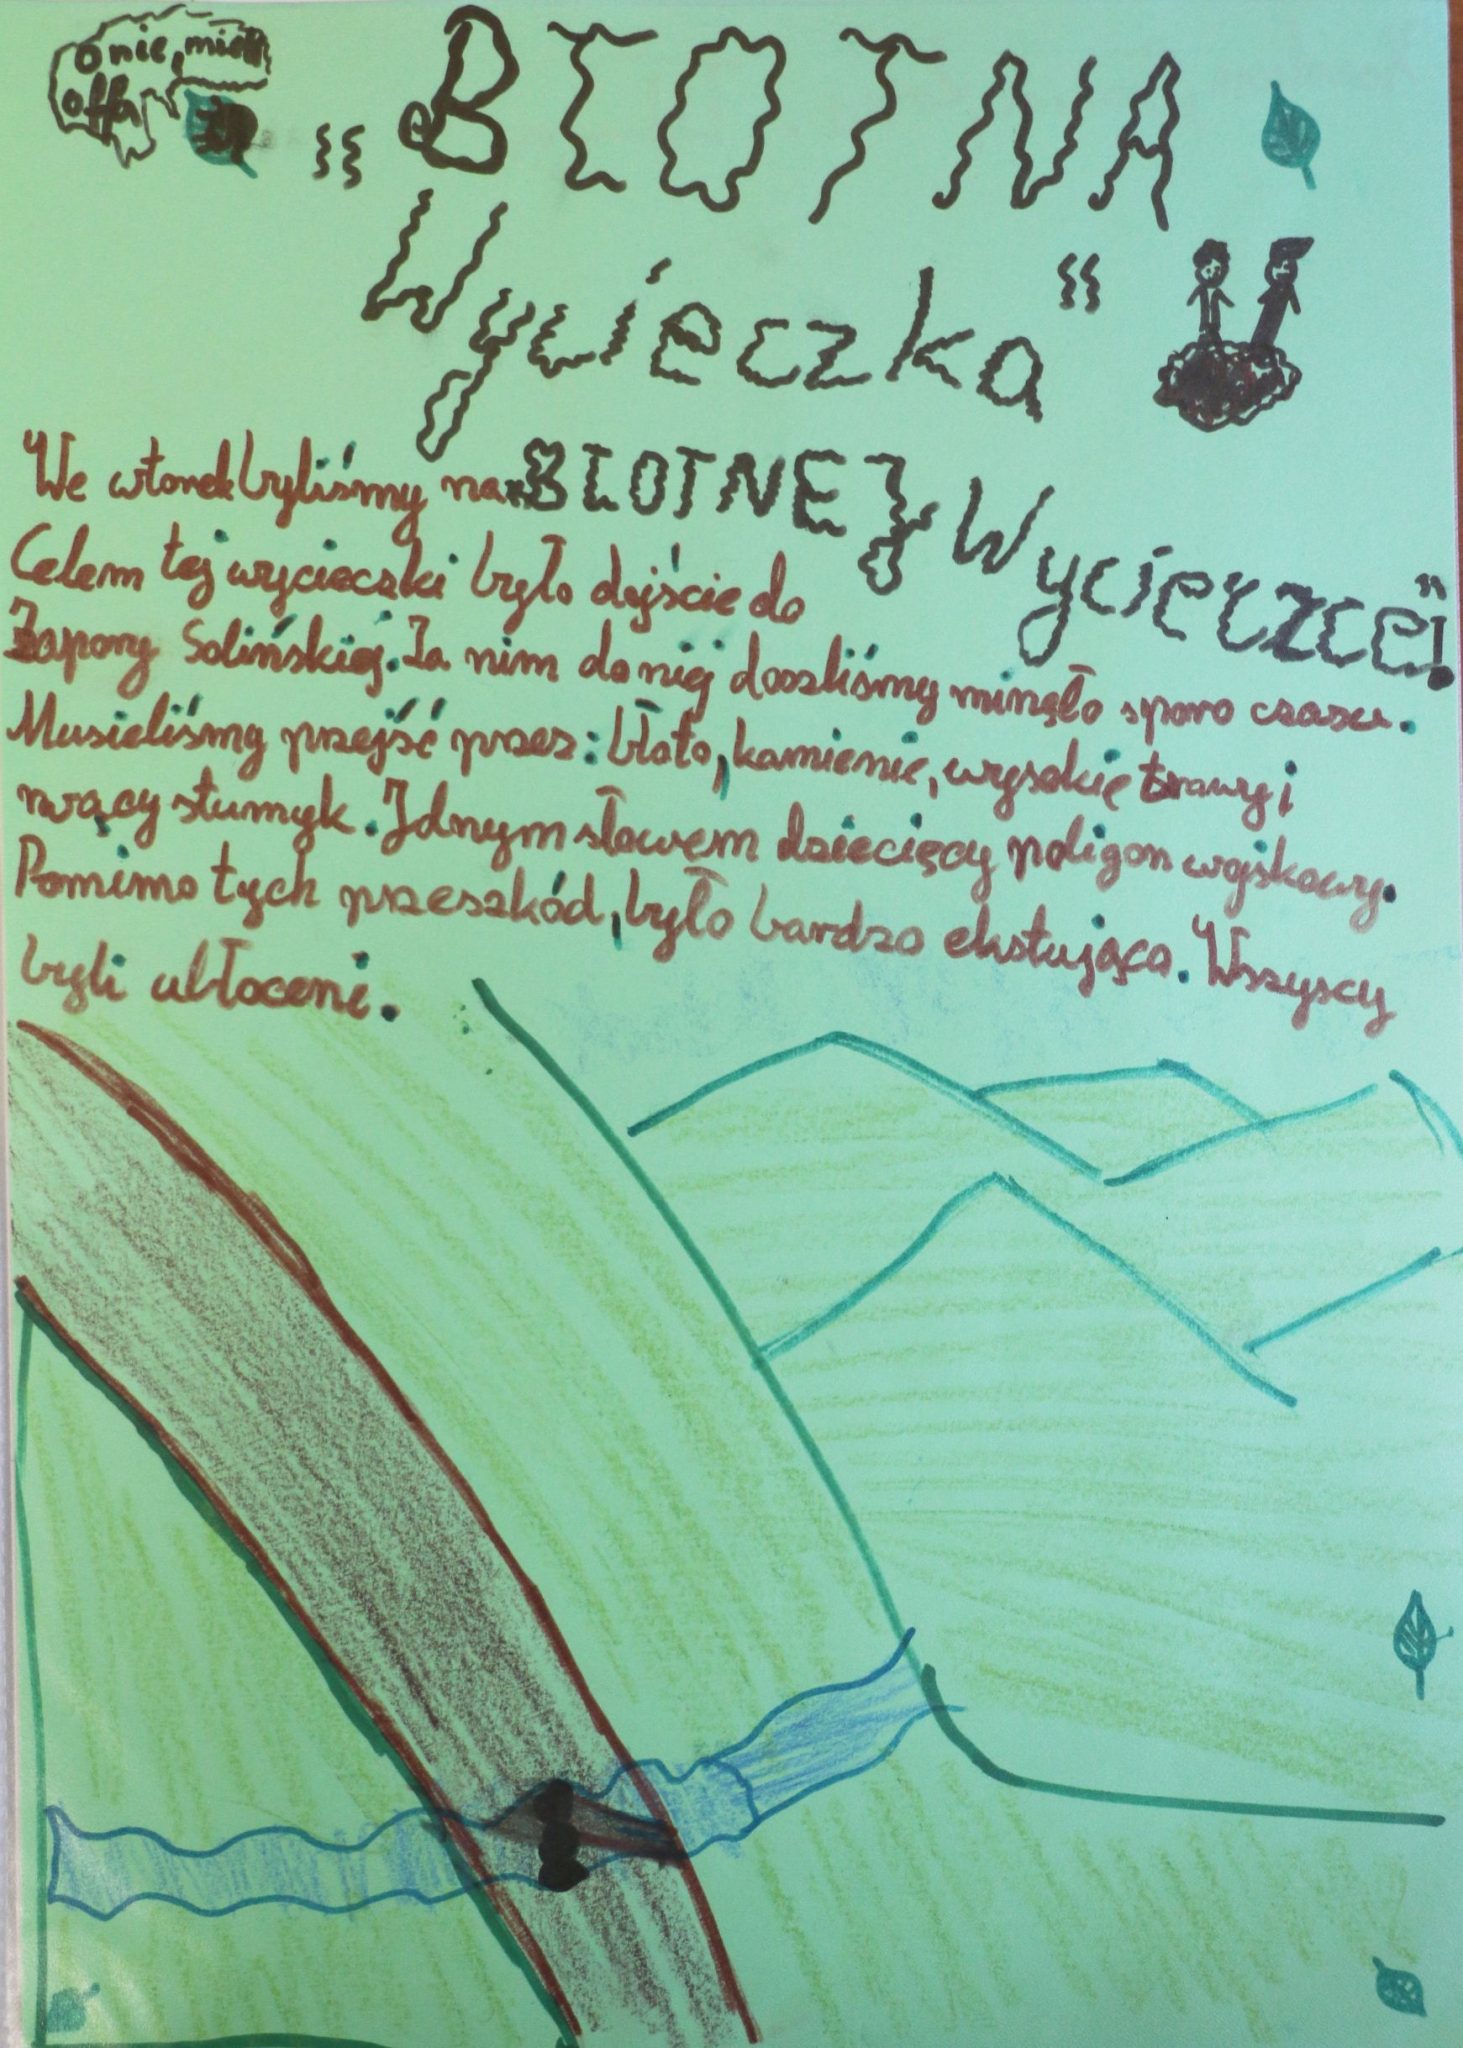 o nie, mam
offa
"BŁOTNA
Wycieczka"
We wtorek byliśmy na "BŁOTNEJ Wycieczce"!
Celem tej wycieczki było dojście do
Zapory Solińskiej. Za nim do niej doszliśmy minęło sporo czasu.
Musieliśmy przejść przez: błoto, kamienie, wysokie trawy i
rwący stumyk. Jdnym słowem dziecięcy poligon wojskowy.
Pomimo tych przeszkód, było bardzo ekstująco. Wszyscy
byli ubłoceni.